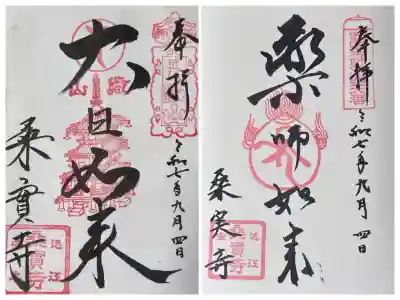 奉拝
令和七年九月四日
大日如来
桑實寺
奉拝
令和七年九月四日
薬師如来
桑実寺